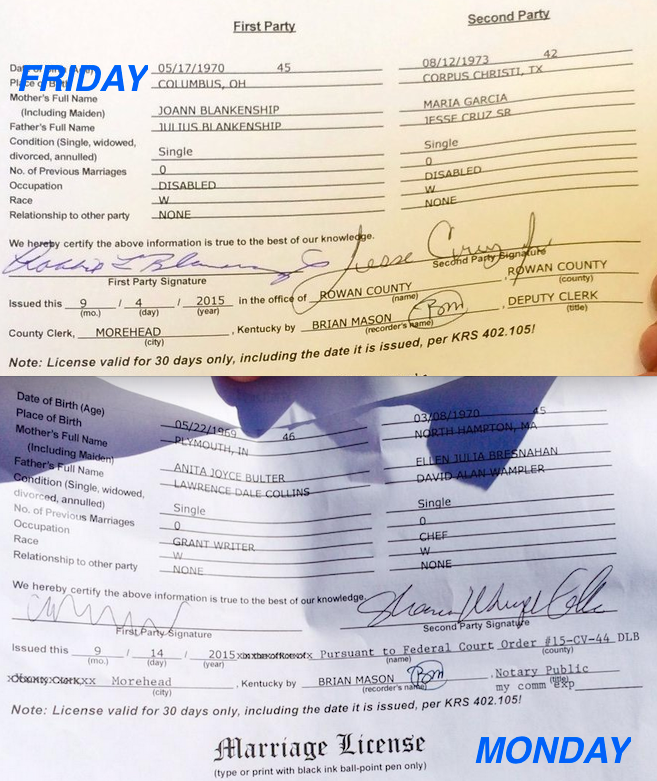 First Party Second Party
FRIDAY
Date of Birth (Age) 05/17/1970 45 08/12/1973 42
Place of Birth COLUMBUS, OH CORPUS CHRISTI, TX
Mother's Full Name
(Including Maiden) JOANN BLANKENSHIP MARIA GARCIA
Father's Full Name JULIUS BLANKENSHIP JESSE CRUZ SR
Condition (Single, widowed,
divorced, annulled) Single Single
No. of Previous Marriages 0 0
Occupation DISABLED DISABLED
Race W W
Relationship to other party NONE NONE
We hereby certify the above information is true to the best of our knowledge.
Jesse Cruz Jr
First Party Signature Second Party Signature
Issued this 9 / 4 / 2015 in the office of ROWAN COUNTY , ROWAN COUNTY
(mo.) (day) (year) (name) (county)
County Clerk, MOREHEAD , Kentucky by BRIAN MASON Bm , DEPUTY CLERK
(city) (recorder's name) (title)
Note: License valid for 30 days only, including the date it is issued, per KRS 402.105!
Date of Birth (Age) 05/22/1969 46 03/08/1970 45
Place of Birth PLYMOUTH, IN NORTH HAMPTON, MA
Mother's Full Name
(Including Maiden) ANITA JOYCE BULTER ELLEN JULIA BRESNAHAN
Father's Full Name LAWRENCE DALE COLLINS DAVID ALAN WAMPLER
Condition (Single, widowed,
divorced, annulled) Single Single
No. of Previous Marriages 0 0
Occupation GRANT WRITER CHEF
Race W W
Relationship to other party NONE NONE
We hereby certify the above information is true to the best of our knowledge.
First Party Signature Second Party Signature
Issued this 9 / 14 / 2015 Pursuant to Federal Court Order #15-CV-44 DLB
(mo.) (day) (year) (name) (county)
Morehead , Kentucky by BRIAN MASON Bm , Notary Public
(city) (recorder's name) (title)
my comm exp
Note: License valid for 30 days only, including the date it is issued, per KRS 402.105!
Marriage License
(type or print with black ink ball-point pen only)
MONDAY